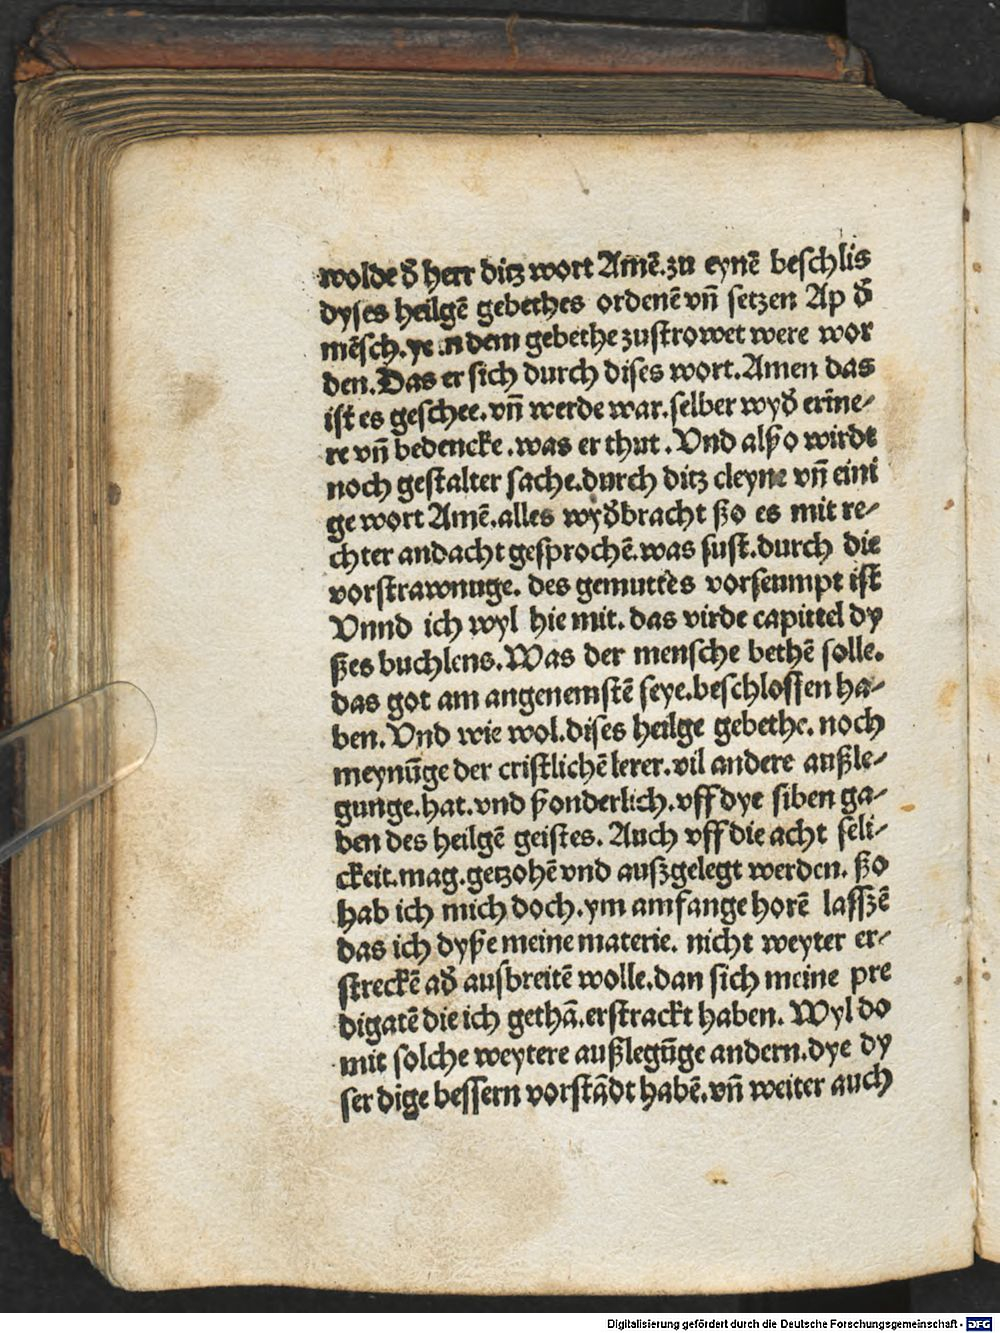 wolde d̄ herr ditz wort Amē.zu eynē beschlis
dyses heilgē gebethes ordenē vn̄ setzen Ap d̄
mēsch. dem gebethe zustrowet were wor
den. Das er sich durch dises wort.Amen das
ist es geschee.vn̄ werde war.selber wyd̄ erīne⸗
re vn̄ bedencke .was er thut . Vnd alßo wirdt
noch gestalter sache.durch ditz cleyne vn̄ eini
ge wort Amē.alles wyd̄bracht ßo es mit re⸗
chter andacht gesprochē.was sust.durch die
vorstrawnuge. des gemuttes vorseumpt ist
Vnnd ich wyl hie mit. das virde capittel dy
ßes buchlens. Was der mensche bethē solle.
das got am angenemstē seye.beschlossen ha⸗
ben. Vnd wie wol.dises heilge gebethe. noch
meynūge der cristlichē lerer.vil andere außle⸗
gunge.hat.vnd ßonderlich.vff dye siben ga⸗
ben des heilgē geistes. Auch vff die acht seli⸗
ckeit.mag.getzohē vnd außgelegt werden. ßo
hab ich mich doch.ym amfange horē lasszē
das ich dyße meine materie. nicht weyter er⸗
streckē ad̄ ausbreitē wolle.dan sich meine pre
digatē die ich gethā.erstrackt haben. Wyl do
mit solche weytere außlegūge andern.dye dy
ser dige bessern vorstādt habē.vn̄ weiter auch
Digitalisierung gefördert durch die Deutsche Forschungsgemeinschaft - DFG